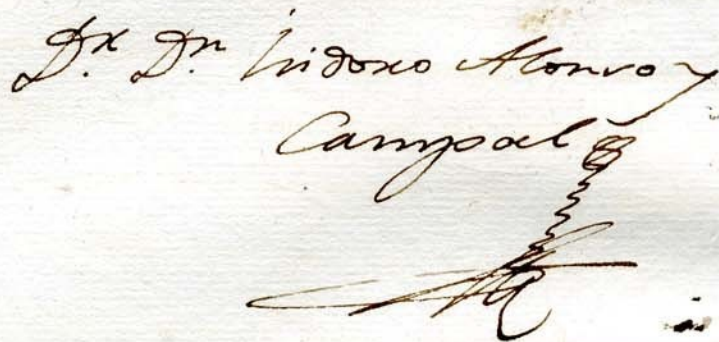 Dr. Dn. Isidoro Alonso y
Campal